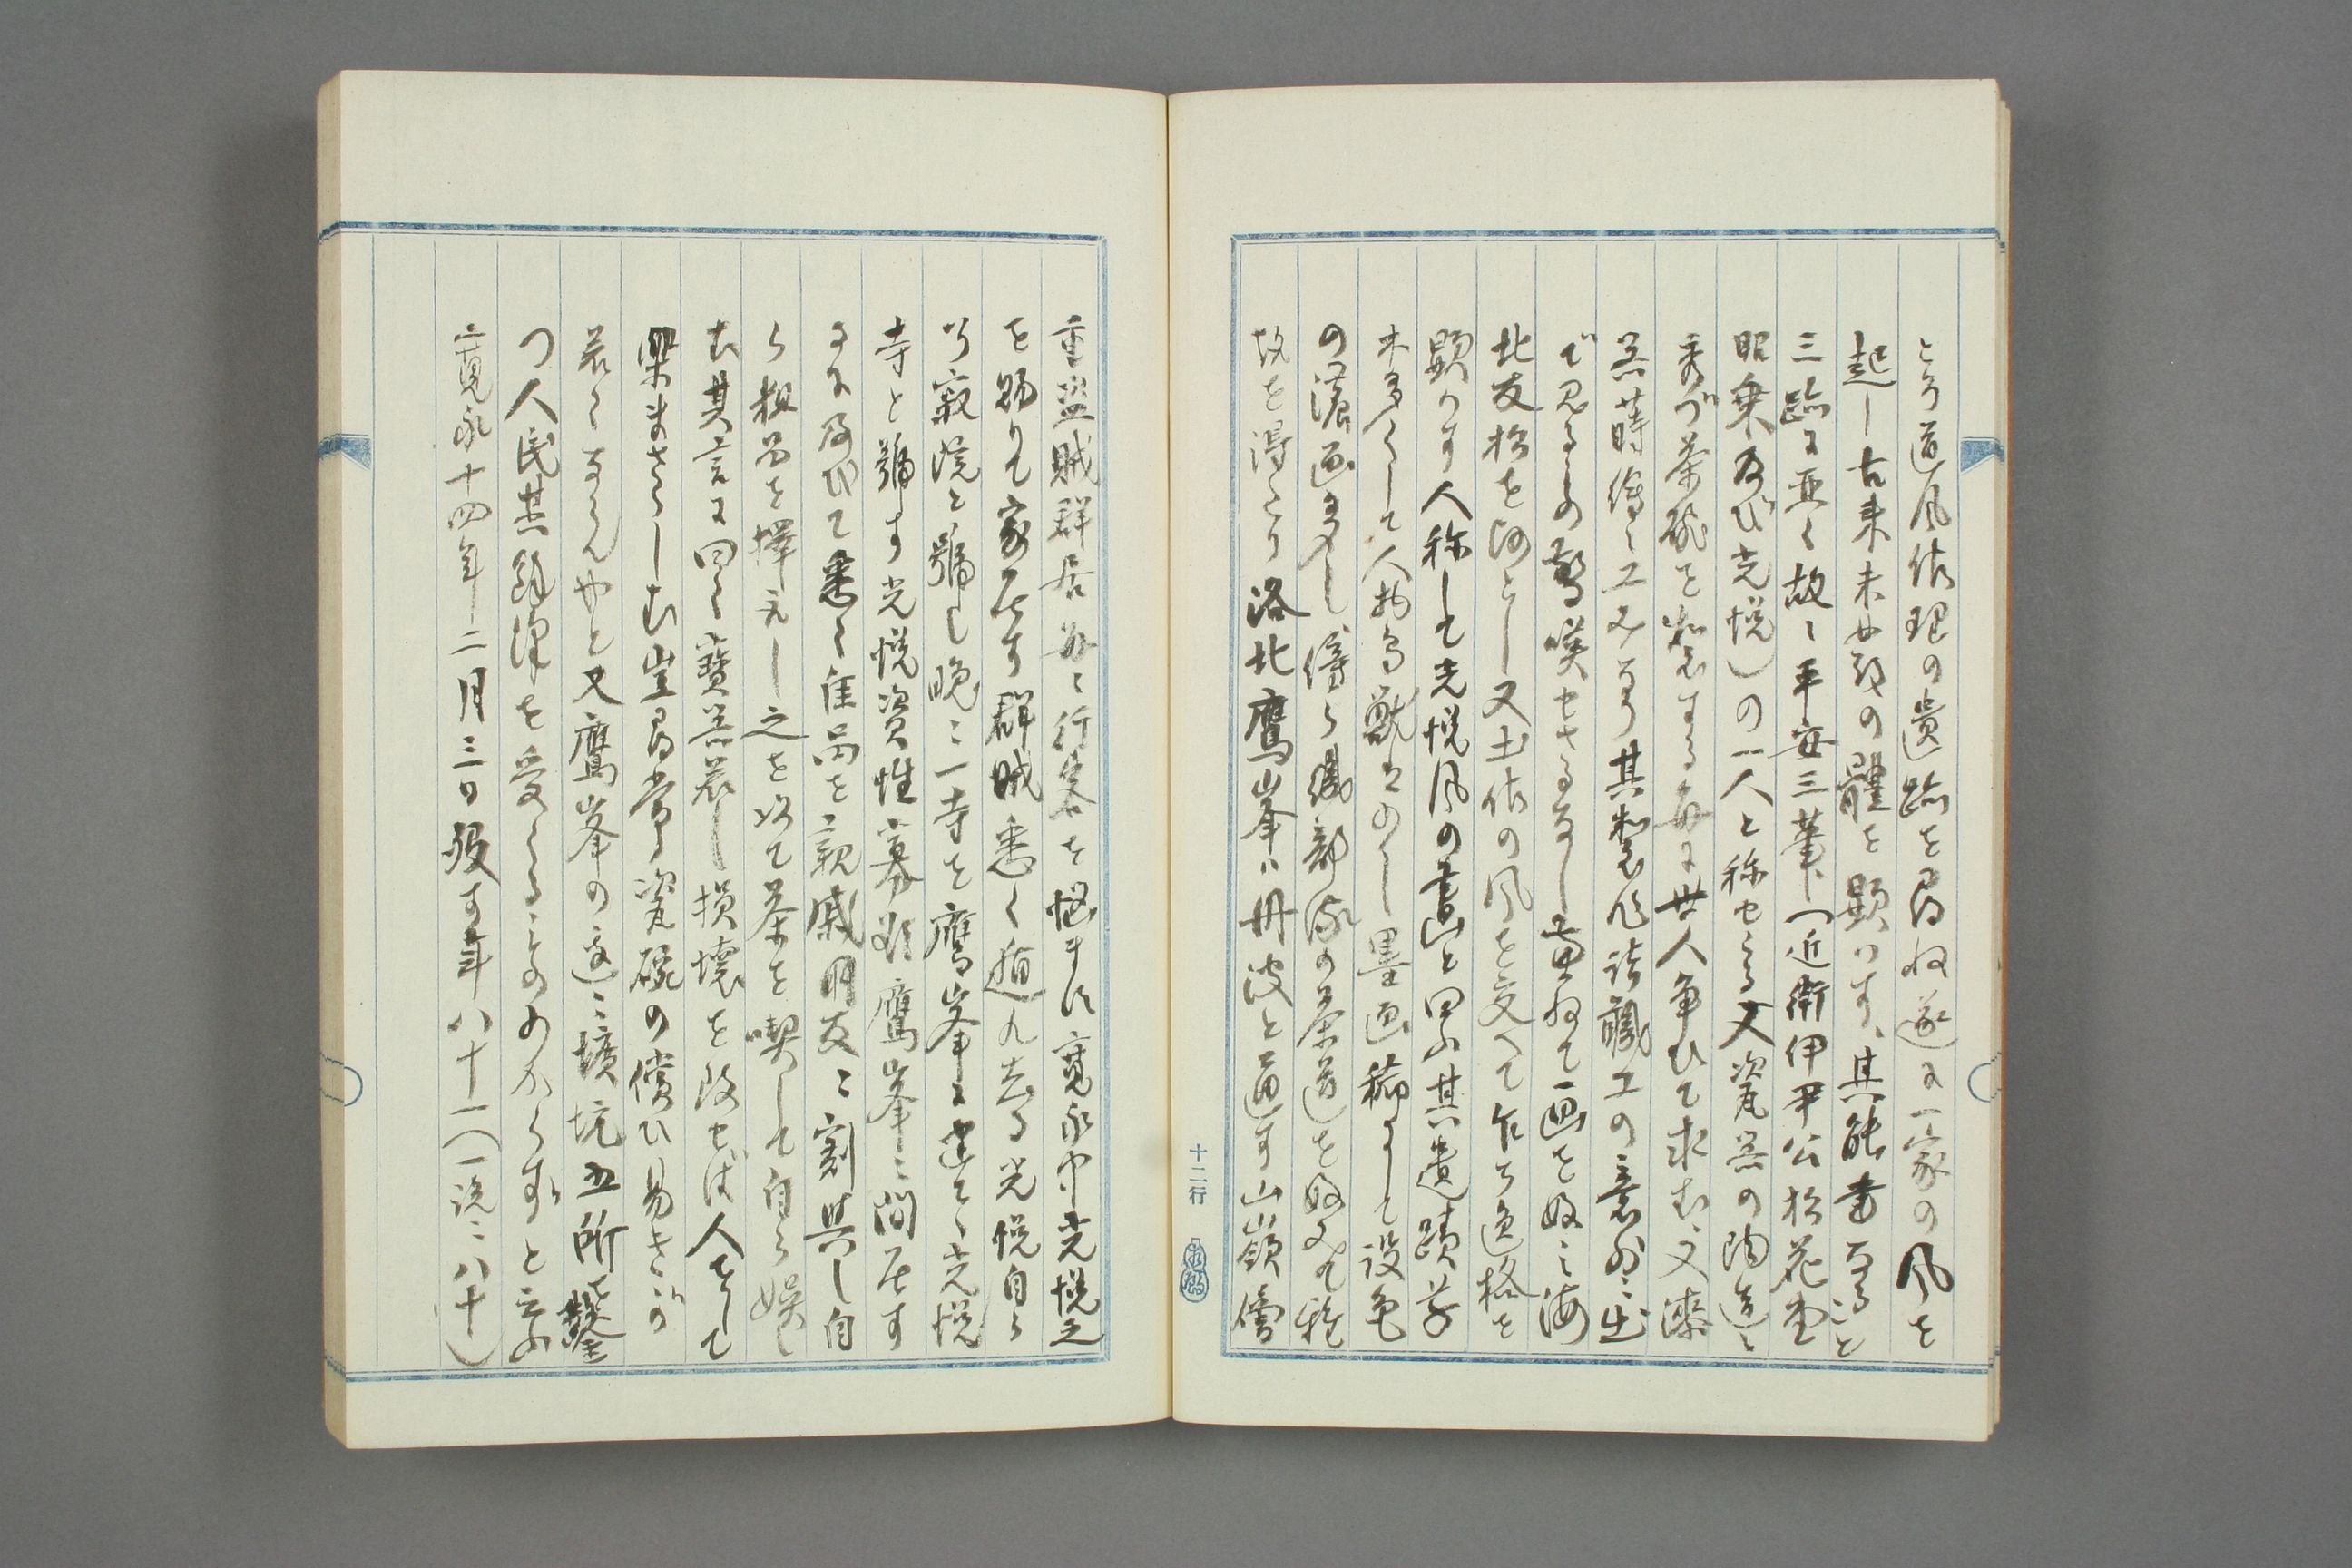 とり道風佐理の遺跡を尋ね遂に一家の風を
起し古来未曾有の體を顕はす、其能書なること
三跡に亜く故に平安三筆(近衛伊尹公松花堂
昭乗及び光悦)の一人と称せらる又瓷器の陶造に
秀づ茶碗を製する毎に世人争ひて求む、又漆
器蒔絵に工みなり其製作諸職工の意外に出
で見るもの驚嘆せさるなし兼ねて画を好み海
北友松を師とし又土佐の風を交へて乍ち逸格を
顕はす人称して光悦風の書画と曰ふ其遺蹟草
木多くして人物鳥獣は少し墨画稀にして設色
の濃画多し、傍ら織部流の茶道を好みて雅
故を得たり洛北鷹峯は丹波と通す山嶺
重盗賊群居毎に行客を悩ます寛永中光悦之
を賜りて家居す群賊悉く遁れ去る光悦自ら
寂院と號し晩に一寺を鷹峯に建て光悦
寺と號す光悦資性寡欲鷹峯に閑居す
るに及びて悉く佳品を親戚朋友に割與し自
ら粗品を擇えし之を以て茶を喫して自ら娯し
む其言に曰く寶器若し損壊を致せば人をして
楽まさらしむ豈尋常瓷碗の償ひ易きが
若くならんやと又鷹峯の邊に壙坑五所を鑿
つ人民其餘澤を受くるもの少からずと云ふ
寛永十四年二月三日歿す年八十一(一説に八十)
十二行